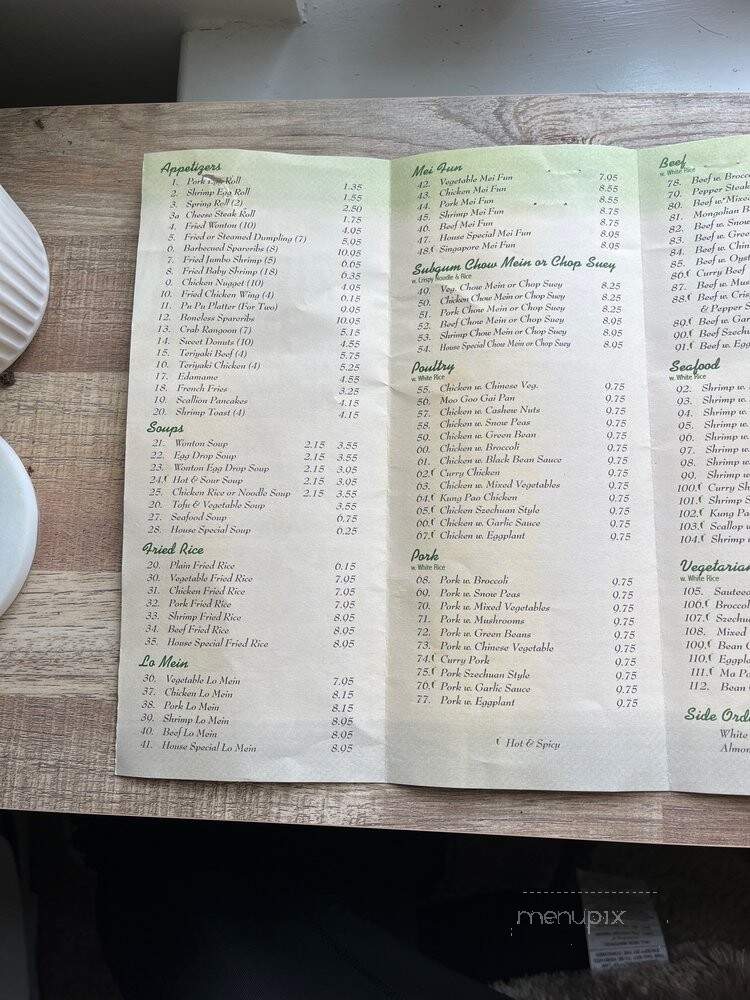 Appetizers
1. Pork Egg Roll 1.35
2. Shrimp Egg Roll 1.55
3. Spring Roll (2) 2.50
3a Cheese Steak Roll 1.75
4. Fried Wonton (10) 4.95
5. Fried or Steamed Dumpling (7) 5.95
6. Barbecued Spareribs (8) 10.95
7. Fried Jumbo Shrimp (5) 6.65
8. Fried Baby Shrimp (18) 6.35
9. Chicken Nugget (10) 4.95
10. Fried Chicken Wing (4) 6.15
11. Pu Pu Platter (For Two) 9.95
12. Boneless Spareribs 10.95
13. Crab Rangoon (7) 5.15
14. Sweet Donuts (10) 4.55
15. Teriyaki Beef (4) 5.75
16. Teriyaki Chicken (4) 5.25
17. Edamame 4.55
18. French Fries 3.25
19. Scallion Pancakes 4.15
20. Shrimp Toast (4) 4.15
Soups
21. Wonton Soup 2.15 3.55
22. Egg Drop Soup 2.15 3.55
23. Wonton Egg Drop Soup 2.15 3.95
24. Hot & Sour Soup 2.15 3.95
25. Chicken Rice or Noodle Soup 2.15 3.55
26. Tofu & Vegetable Soup 3.55
27. Seafood Soup 6.75
28. House Special Soup 6.25
Fried Rice
29. Plain Fried Rice 6.15
30. Vegetable Fried Rice 7.95
31. Chicken Fried Rice 7.95
32. Pork Fried Rice 7.95
33. Shrimp Fried Rice 8.95
34. Beef Fried Rice 8.95
35. House Special Fried Rice 8.95
Lo Mein
36. Vegetable Lo Mein 7.95
37. Chicken Lo Mein 8.15
38. Pork Lo Mein 8.15
39. Shrimp Lo Mein 8.95
40. Beef Lo Mein 8.95
41. House Special Lo Mein 8.95
Mei Fun
42. Vegetable Mei Fun 7.95
43. Chicken Mei Fun 8.55
44. Pork Mei Fun 8.55
45. Shrimp Mei Fun 8.75
46. Beef Mei Fun 8.75
47. House Special Mei Fun 8.95
48. Singapore Mei Fun 8.95
Subgum Chow Mein or Chop Suey
w. Crispy Noodle & Rice
49. Veg. Chow Mein or Chop Suey 8.25
50. Chicken Chow Mein or Chop Suey 8.25
51. Pork Chow Mein or Chop Suey 8.25
52. Beef Chow Mein or Chop Suey 8.95
53. Shrimp Chow Mein or Chop Suey 8.95
54. House Special Chow Mein or Chop Suey 8.95
Poultry
w. White Rice
55. Chicken w. Chinese Veg. 9.75
56. Moo Goo Gai Pan 9.75
57. Chicken w. Cashew Nuts 9.75
58. Chicken w. Snow Peas 9.75
59. Chicken w. Green Bean 9.75
60. Chicken w. Broccoli 9.75
61. Chicken w. Black Bean Sauce 9.75
62. Curry Chicken 9.75
63. Chicken w. Mixed Vegetables 9.75
64. Kung Pao Chicken 9.75
65. Chicken Szechuan Style 9.75
66. Chicken w. Garlic Sauce 9.75
67. Chicken w. Eggplant 9.75
Pork
w. White Rice
68. Pork w. Broccoli 9.75
69. Pork w. Snow Peas 9.75
70. Pork w. Mixed Vegetables 9.75
71. Pork w. Mushrooms 9.75
72. Pork w. Green Beans 9.75
73. Pork w. Chinese Vegetable 9.75
74. Curry Pork 9.75
75. Pork Szechuan Style 9.75
76. Pork w. Garlic Sauce 9.75
77. Pork w. Eggplant 9.75
Hot & Spicy
Beef
w. White Rice
78. Beef w. Brocco
79. Pepper Steak
80. Beef w. Mixed
81. Mongolian B
82. Beef w. Snow
83. Beef w. Green
84. Beef w. Chin
85. Beef w. Oyst
86. Curry Beef
87. Beef w. Mus
88. Beef w. Cris
& Pepper S
89. Beef w. Gar
90. Beef Szech
91. Beef w. Egg
Seafood
w. White Rice
92. Shrimp w.
93. Shrimp w.
94. Shrimp w.
95. Shrimp w.
96. Shrimp w.
97. Shrimp w.
98. Shrimp w.
99. Shrimp w.
100. Curry Sh
101. Shrimp S
102. Kung Pa
103. Scallop w
104. Shrimp w
Vegetarian
w. White Rice
105. Sauteed
106. Broccol
107. Szechu
108. Mixed
109. Bean C
110. Eggpl
111. Ma Po
112. Bean
Side Ord
White
Almon
menupix